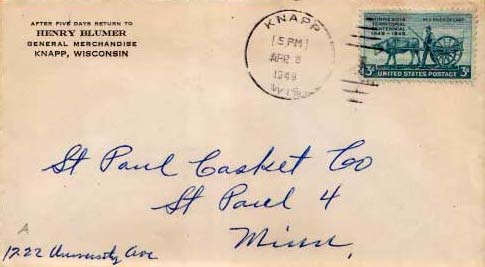 AFTER FIVE DAYS RETURN TO
HENRY BLUMER
GENERAL MERCHANDISE
KNAPP, WISCONSIN
KNAPP
5 PM
APR
1949
WIS
MINNESOTA
TERRITORIAL
CENTENNIAL
1849-1949
RED RIVER CART
3¢ UNITED STATES POSTAGE 3¢
St Paul Casket Co
St Paul 4
Minn,
A
1222 University Ave